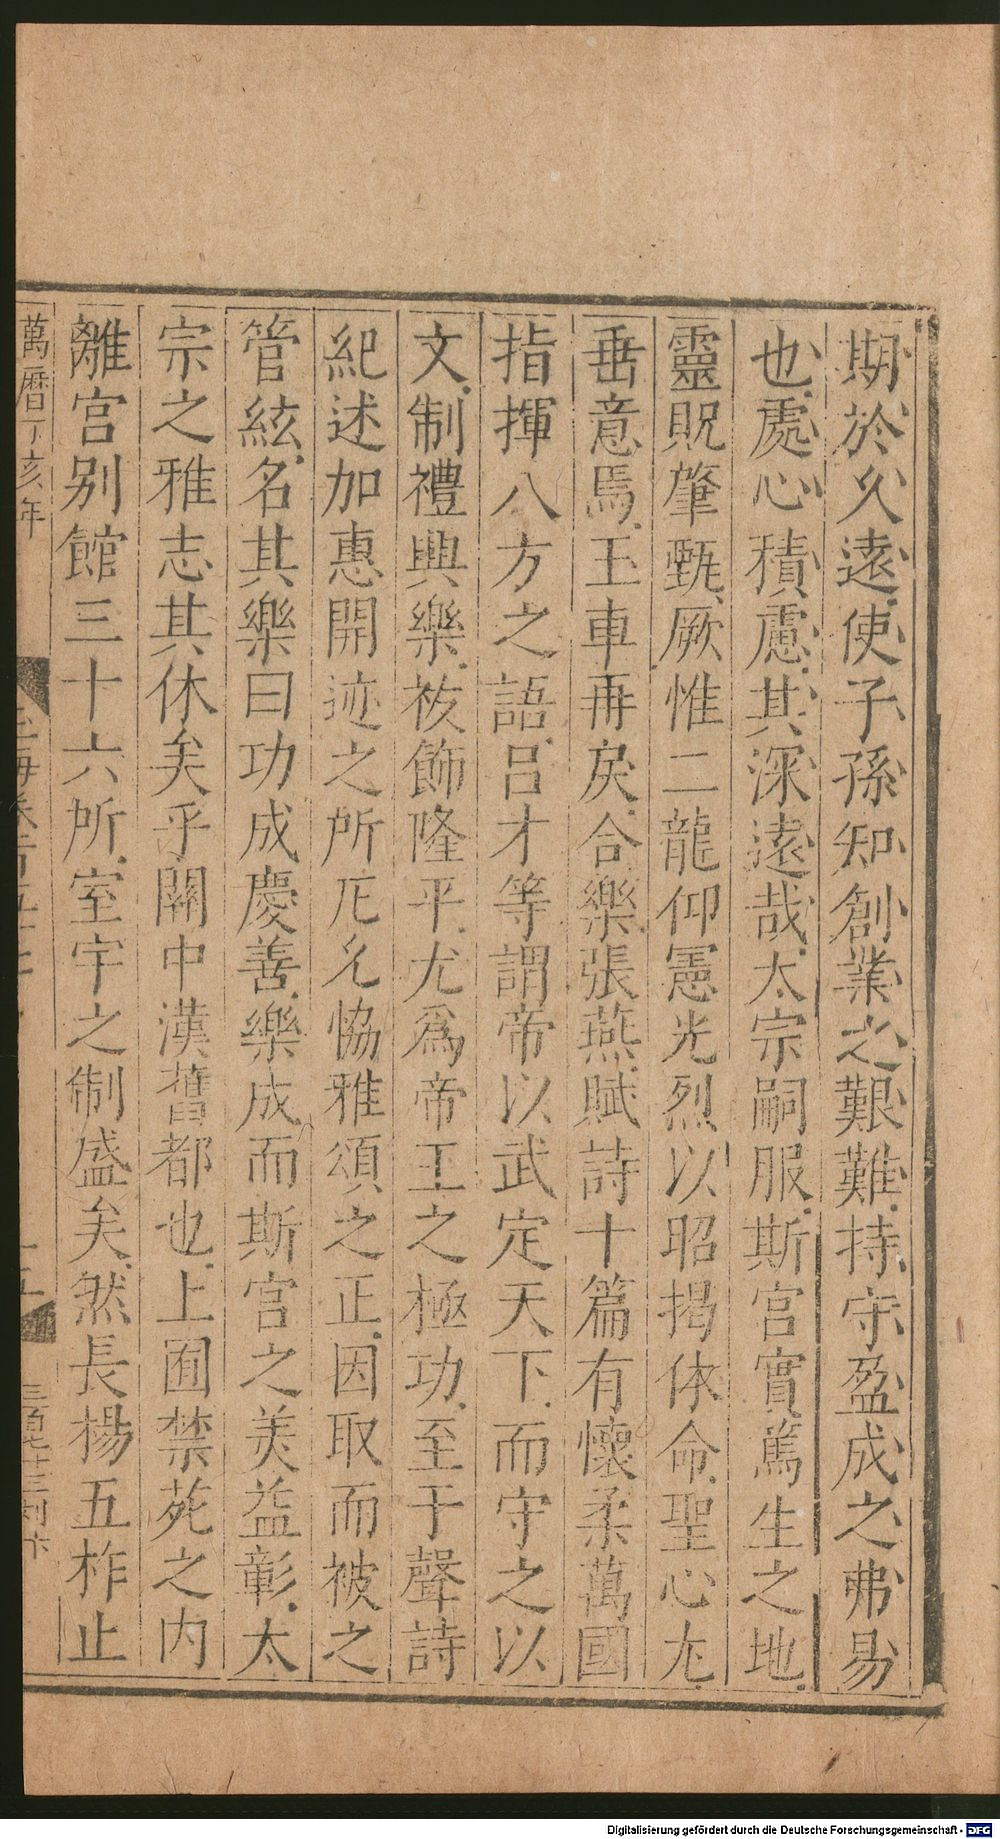 期於久遠使子孫知創業之艱難持守盈成之弗易
也處心積慮其深遠哉太宗嗣服斯宮實篤生之地
靈貺肇甄厥惟二龍仰憲光烈以昭揭休命聖心尤
垂意焉玉車再戾合樂張燕賦詩十篇有懷柔萬國
指揮八方之語呂才等謂帝以武定天下而守之以
文制禮興樂祓飾隆平尤爲帝王之極功至于聲詩
紀述加惠開迹之所厄允恊雅頌之正因取而被之
管絃名其樂曰功成慶善樂成而斯宮之美益彰太
宗之雅志其休矣乎關中漢舊都也上囿禁苑之內
離宮别館三十六所室宇之制盛矣然長楊五柞止
萬曆丁亥年
Digitalisierung gefördert durch die Deutsche Forschungsgemeinschaft - DFG